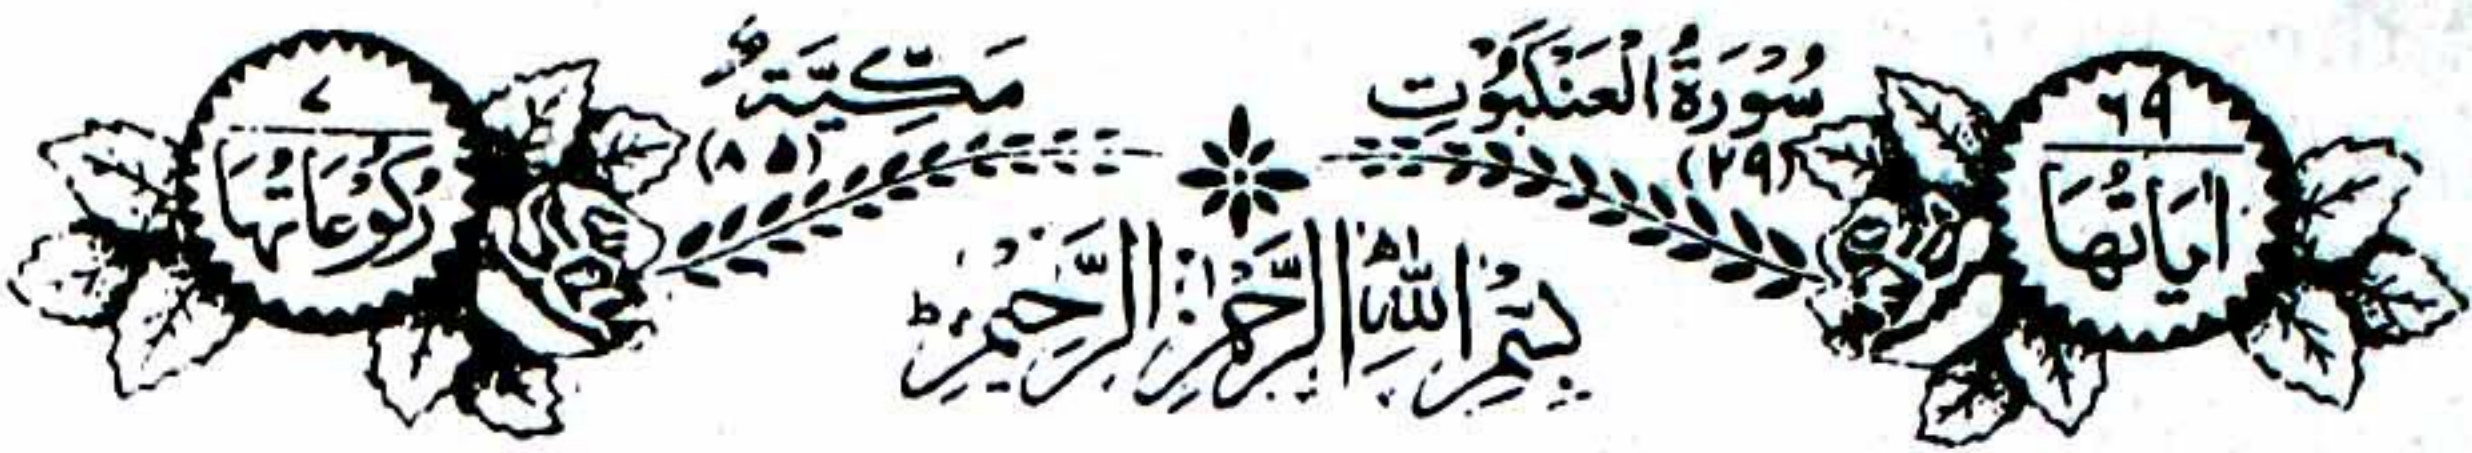 ۶۹
اٰيَاتُهَا
سُوْرَةُ الْعَنْكَبُوْتِ
(۲۹)
مَكِّيَّةٌ
(۸۵)
۷
رُكُوْعَاتُهَا
بِسْمِ اللّٰهِ الرَّحْمٰنِ الرَّحِيْمِ ط